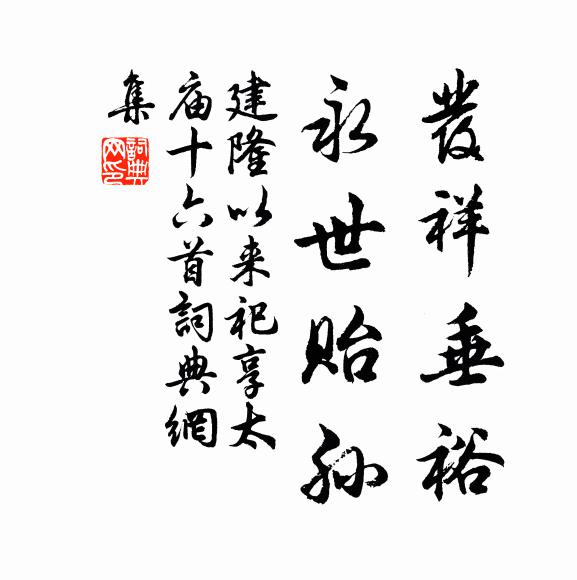 發祥垂裕
永世貽孙
建隆以来祀享太
庙十六首詞典網
集
詞典网印